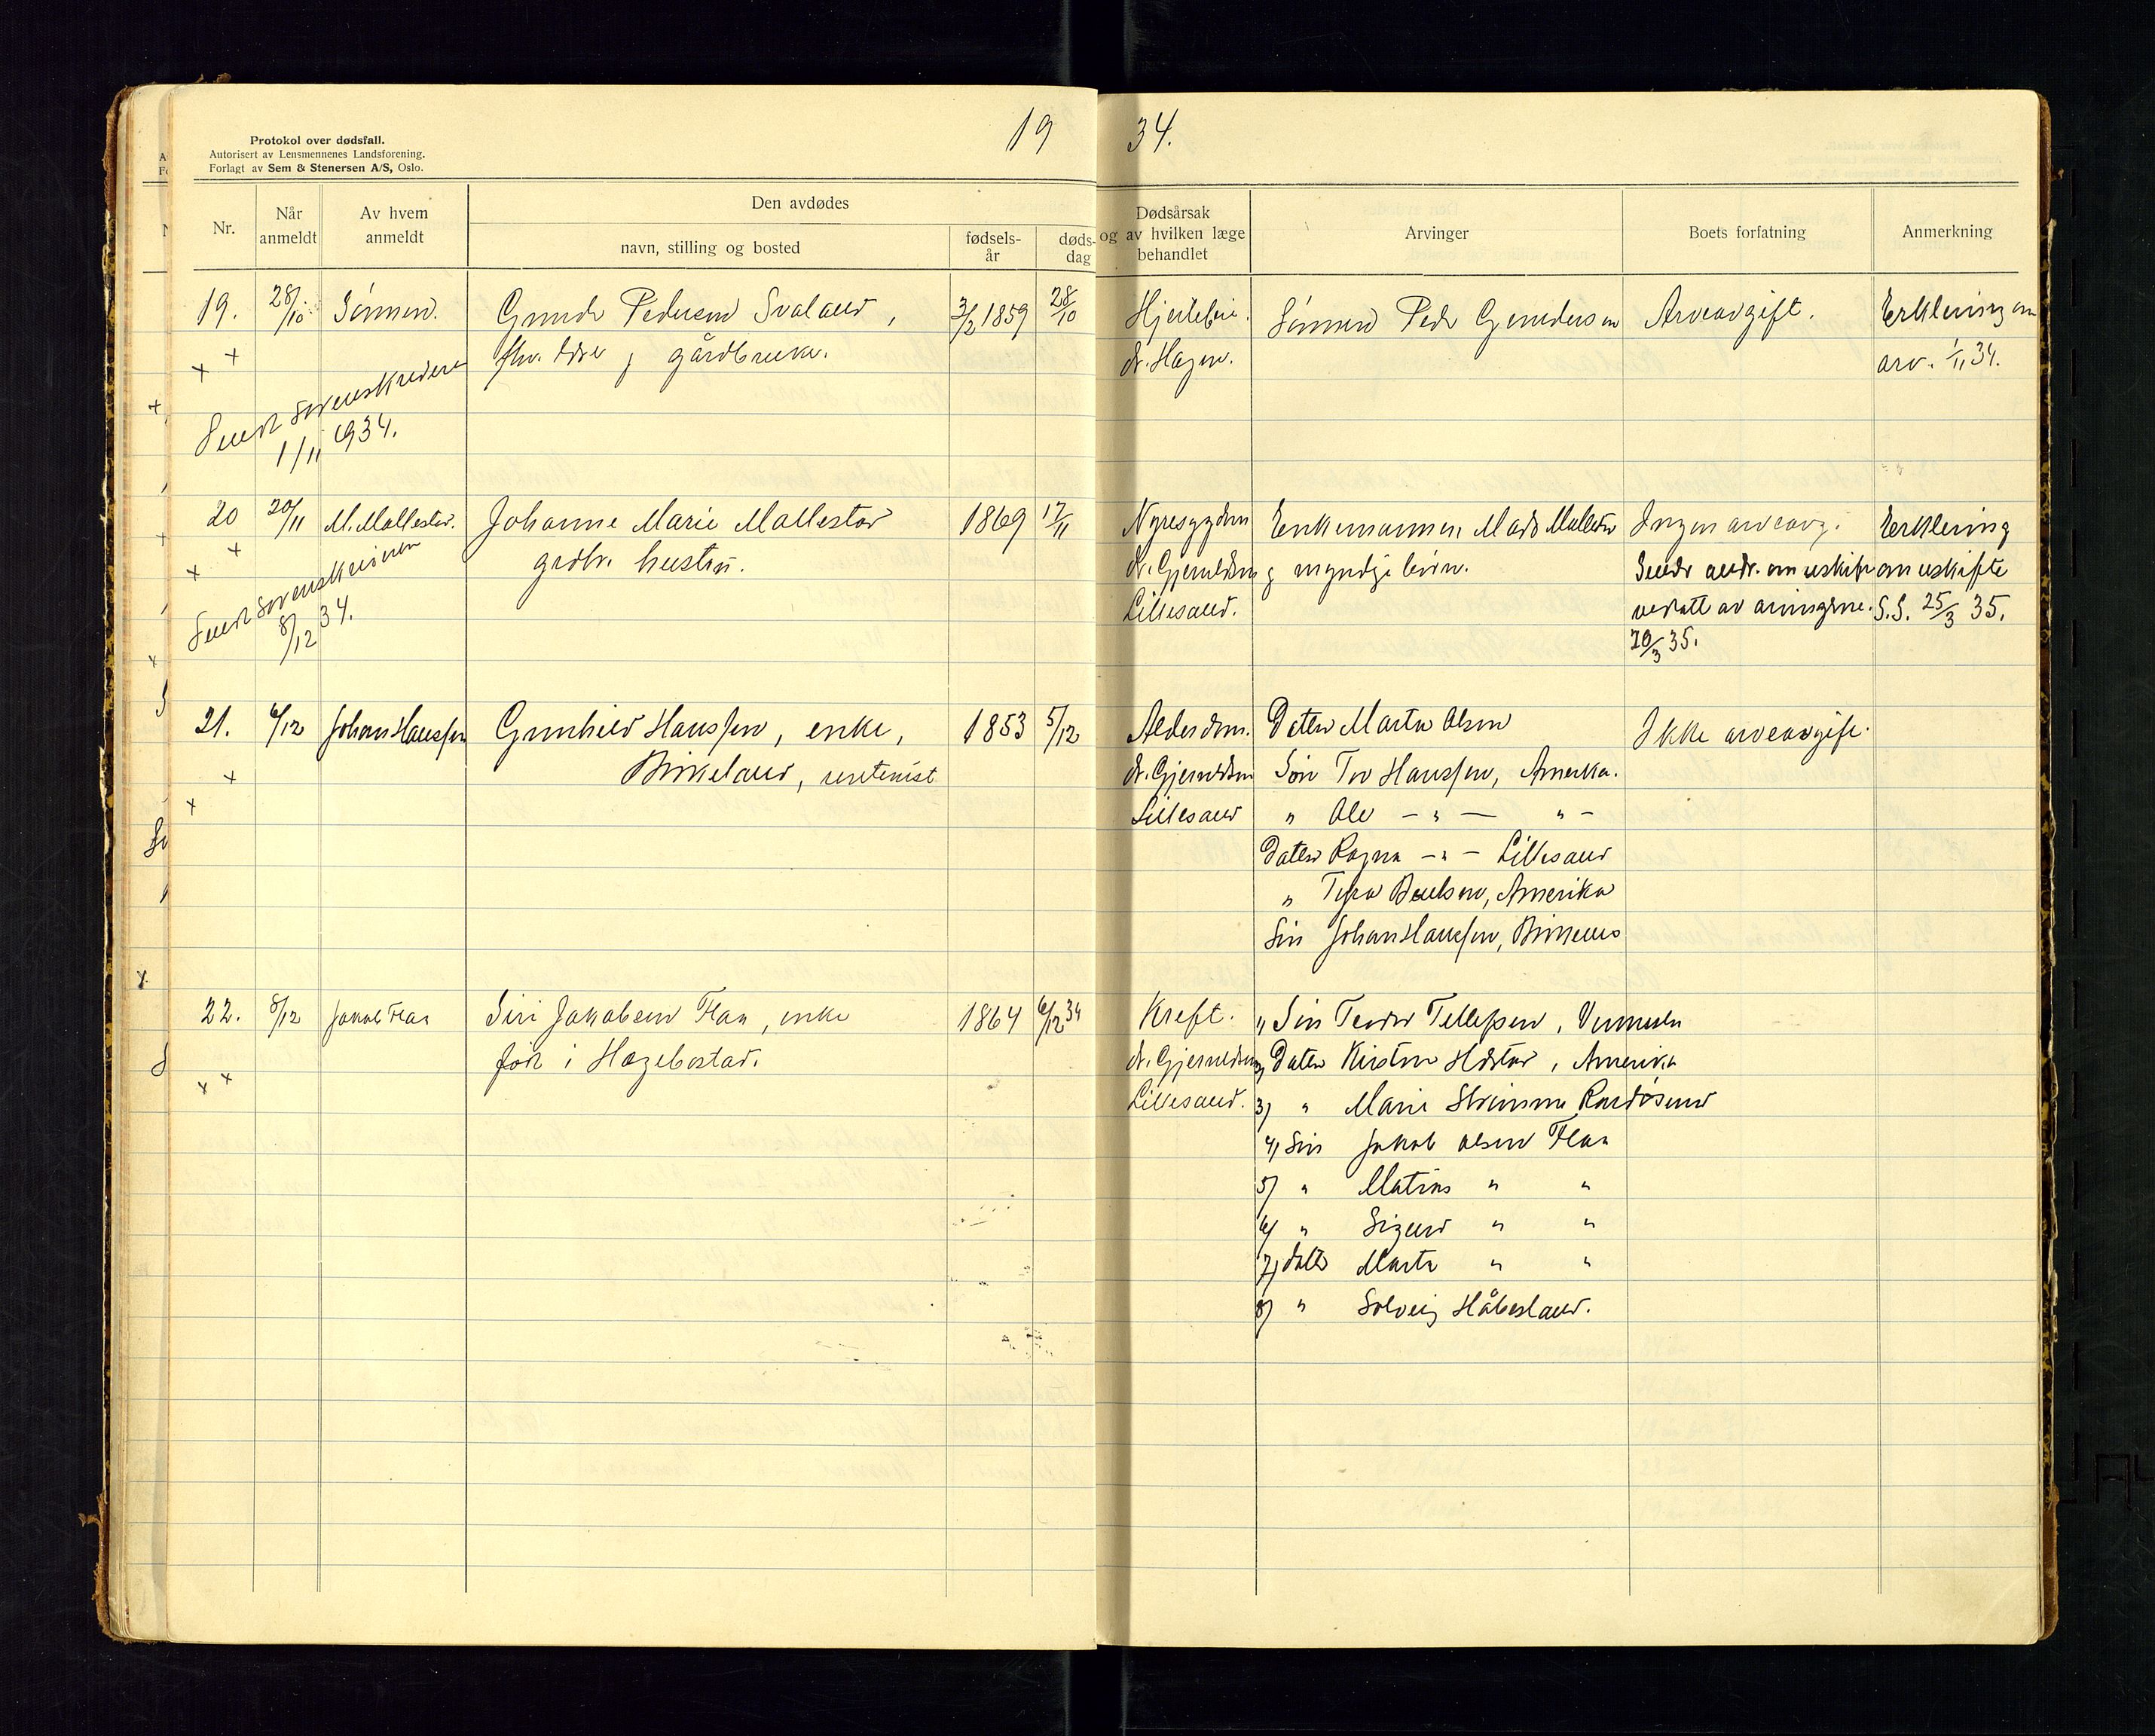 19 34.
Protokol over dødsfall.
Autorisert av Lensmennenes Landsforening.
Forlagt av Sem & Stenersen A/S, Oslo.
Nr.
Når anmeldt
Av hvem anmeldt
Den avdødes
navn, stilling og bosted
fødsels-år
døds-dag
Dødsårsak og av hvilken læge behandlet
Arvinger
Boets forfatning
Anmerkning
19. 28/10 Sønnen. Gunder Pedersen Svaland, 3/2 1859 28/10 Hjertefeil. Sønnen Peder Gundersen Arveavgift. Erklæring om
gårdbruker. dr. Hagen. arv. 1/11 34.
Sendt Sorenskriveren
1/11 1934.
20 20/11 M. Mollestad. Johanne Marie Mollestad 1869 17/11 Nyresygdom Enkemannen Mads Mollestad Ingen arveavg. Erklering
grdbr. hustru. dr. Gjeruldsen og myndige børn. Sendt andr. om uskifte om uskifte
Lillesand. vedtatt av arvingene. S.S. 25/3 35.
20/3 35.
Sendt Sorenskriveren
8/12 34.
21. 6/12 Johan Hanssen Gunhild Hanssen, enke, 1853 5/12 Alderdom. Datter Marta Olsen Ikke arveavgift.
Birkeland, rentenist dr. Gjeruldsen Søn Tor Hanssen, Amerika.
Lillesand " Ole — " — " —
Datter Ragna — " — Lillesand
" Tyra Paulsen, Amerika
Søn Johan Hanssen, Birkeland
22. 8/12 Jakob Flaa Siri Jakobsen Flaa, enke 1864 6/12 34 Kreft. 1) Søn Teodor Tellefsen, Vennesla
født i Hægebostad. dr. Gjeruldsen 2) Datter Kirsten Hodstad, Amerika
Lillesand. 3) " Marie Randøsund
4) Søn Jakob Olsen Flaa
5) " Matias " "
6) " Sigurd " "
7) datter Marta " "
8) " Solveig Håbesland.